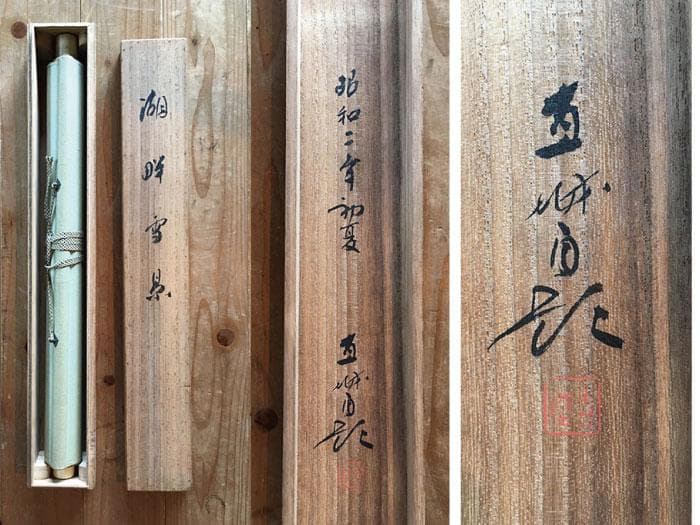 湖畔雪景
昭和二年初夏
直城自題
直城自題